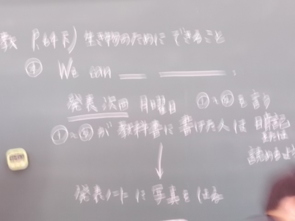 生き物のために できること
④ We can
発表 次回 月曜日 ①~⑤を言う
①~⑤が教科書に書けた人は 暗記
読めるよう
↓
発表ノートに写真をはる